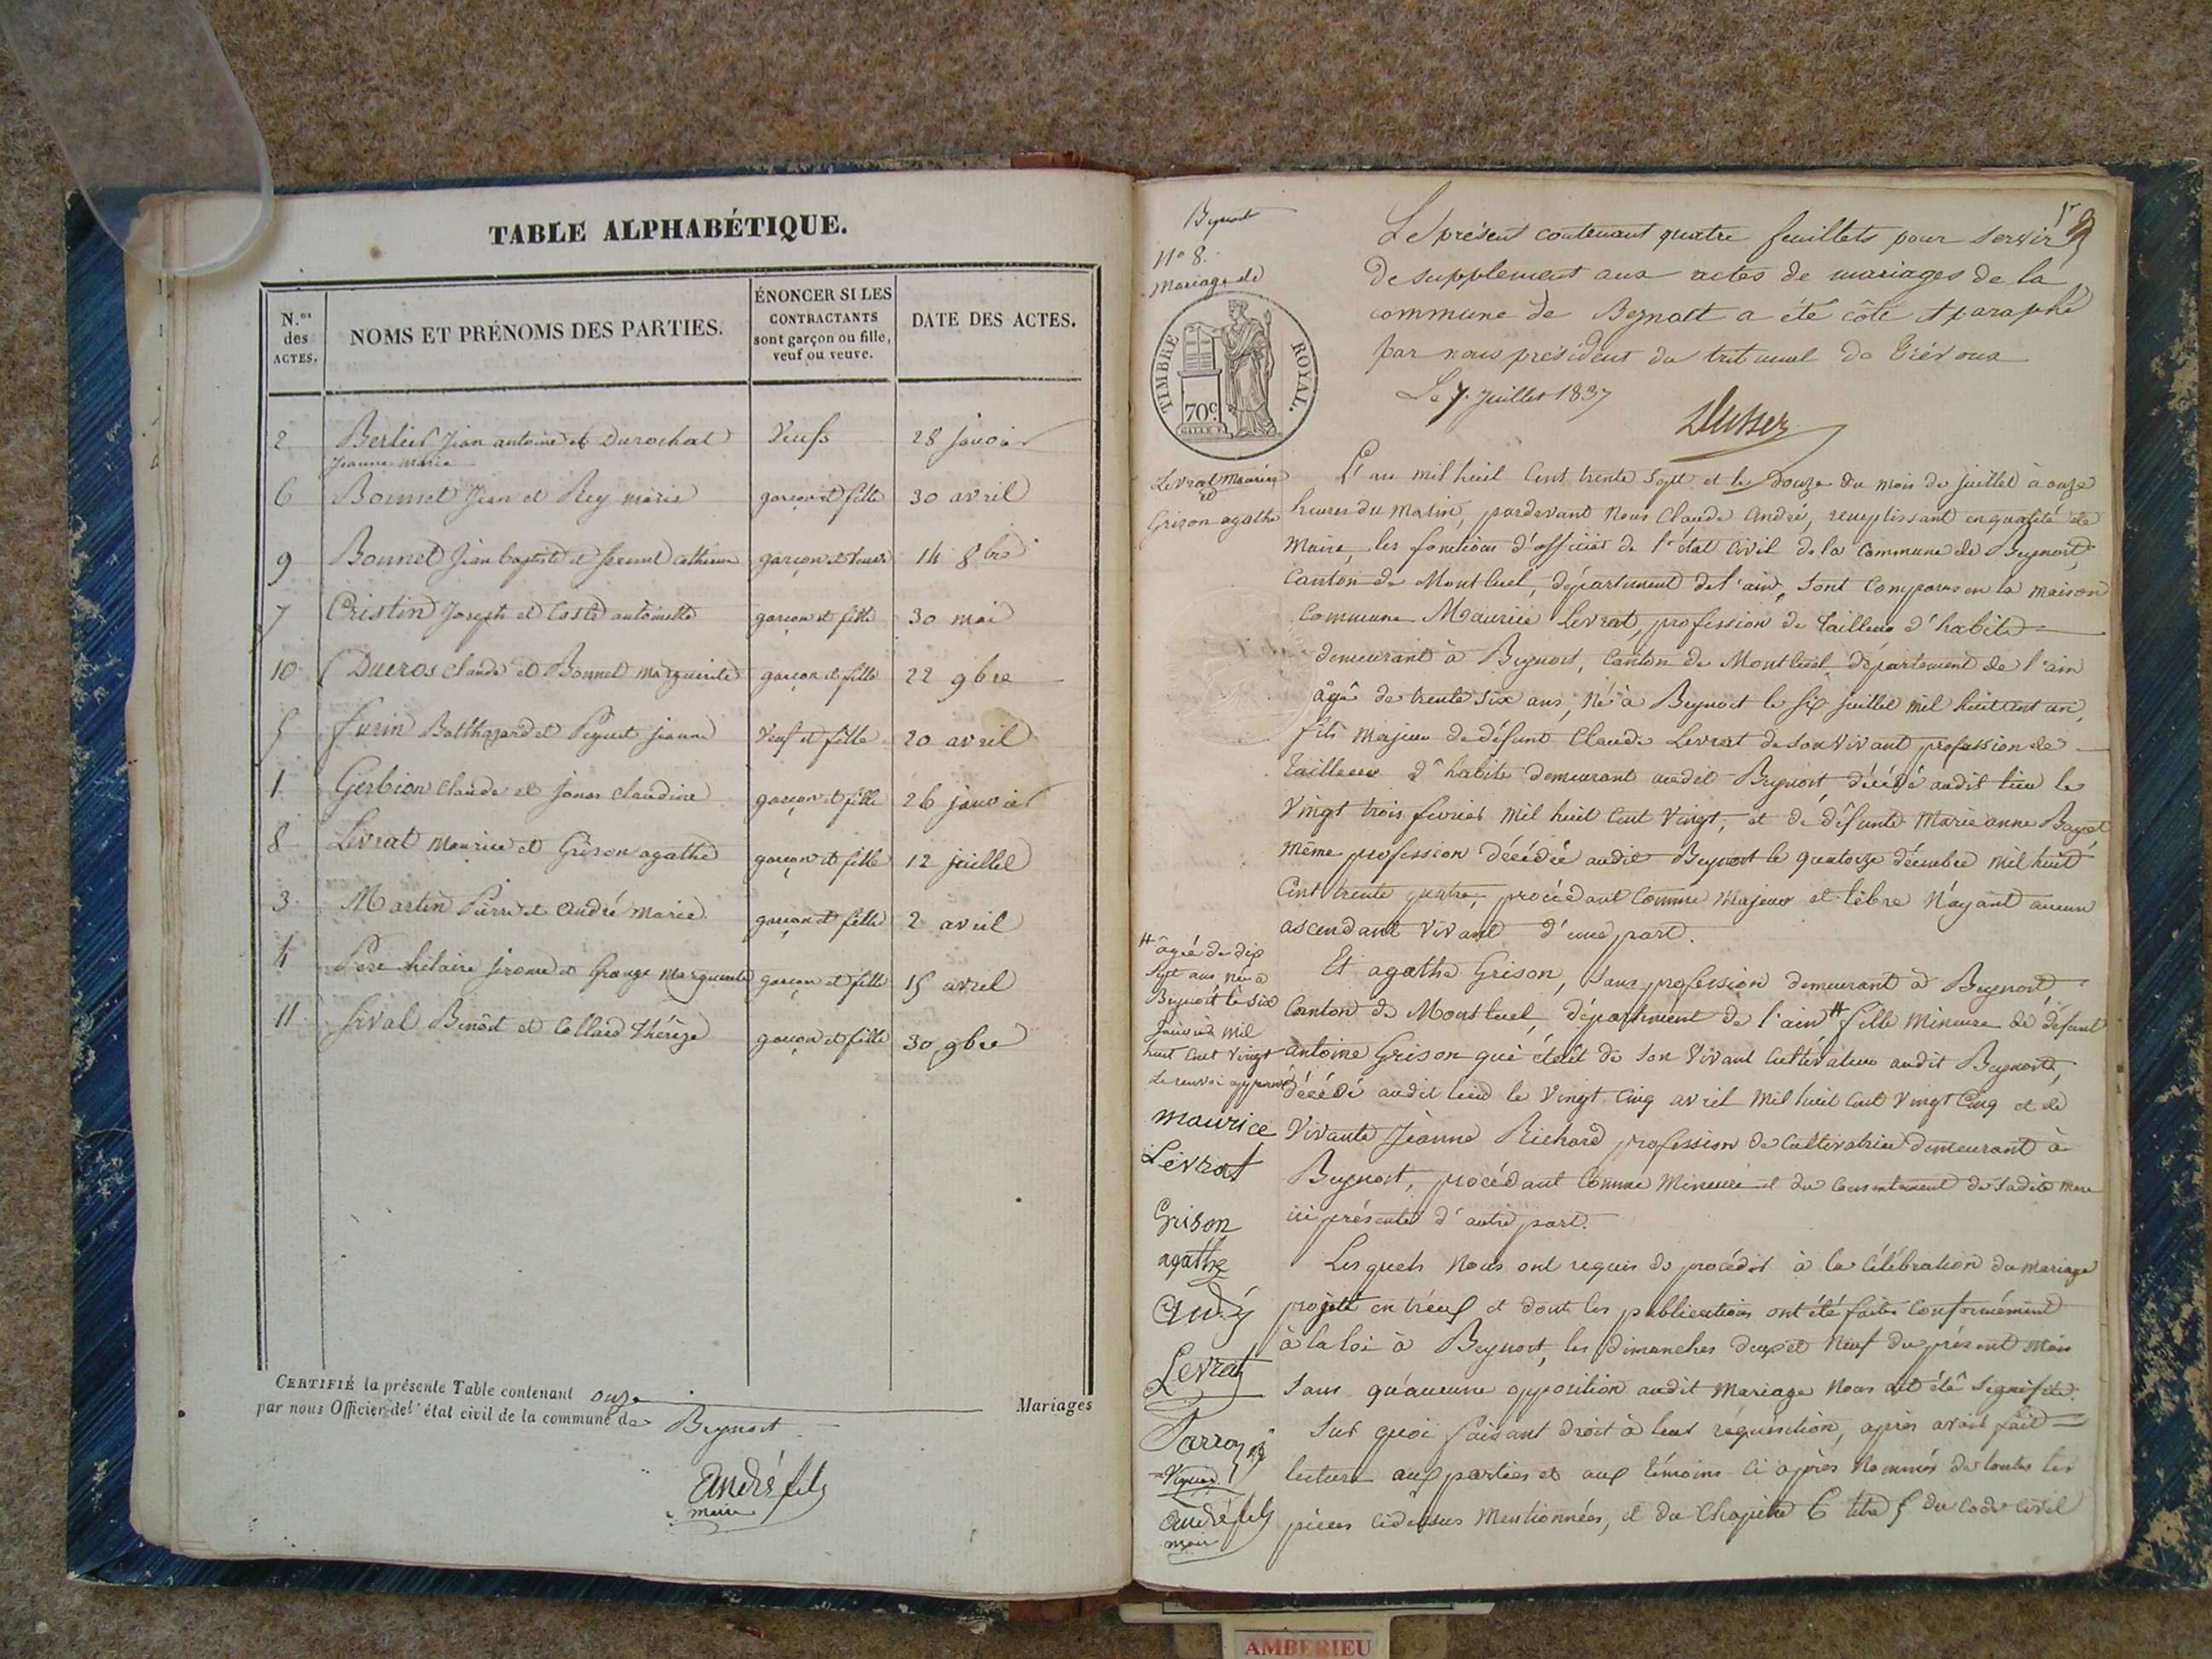 TABLE ALPHABÉTIQUE.
N.os des ACTES.
NOMS ET PRÉNOMS DES PARTIES.
ÉNONCER SI LES CONTRACTANTS sont garçon ou fille, veuf ou veuve.
DATE DES ACTES.
2 Berlier Jean antoine et Durochat Jeanne marie Veufs 28 janvier
6 Bonnet Jean et Rey marie garçon et fille 30 avril
9 Bonnet Jean baptiste et catherine garçon et veuve 14 8bre
7 Cristin Joseph et Coste antoinette garçon et fille 30 mai
10 Ducros claude et Bonnet marguerite garçon et fille 22 9bre
5 furin Balthazard et Peguet jeanne Veuf et fille 20 avril
1 Gerbion claude et Jonas claudine garçon et fille 26 janvier
8 Levrat maurice et Grison agathe garçon et fille 12 juillet
3 Martin Pierre et André marie garçon et fille 2 avril
4 Père hilaire jirome et Grange marguerite garçon et fille 15 avril
11 Sival Benoit et Collard thérèze garçon et fille 30 9bre
CERTIFIÉ la présente Table contenant onze Mariages
par nous Officier de l'état civil de la commune de Beynost
André fils
maire
Beynost
N° 8.
Mariage de
TIMBRE ROYAL.
70c.
Levrat Maurice
et
Grizon agathe
Le présent contenant quatre feuillets pour servir
De supplement aux actes de mariages de la
commune de Beynost a été côté et paraphé
par nous président du tribunal de Trévoux
Le 7 Juillet 1837
L'an mil huit Cent trente Sept et le Douze du mois de juillet à onze
heures du matin, pardevant Nous Claude André, remplissant en qualité de
Maire, les fonctions d'officier de l'état Civil de la Commune de Beynost,
Canton de Montluel, département de l'ain, Sont Comparus en la maison
Commune Maurice Levrat, profession de tailleur d'habits
demeurant à Beynost, Canton de Montluel département de l'ain
âgé de trente Six ans, Né à Beynost le six juillet mil huit cent un,
fils Majeur de défunt Claude Levrat de son vivant profession de
Tailleur d'habits demeurant audit Beynost, décédé audit lieu le
Vingt trois fevrier mil huit Cent Vingt, et de défunte Marie anne Bayet
même profession décédée audit Beynost le quatorze décembre mil huit
Cent trente quatre, procédant Comme Majeur et libre N'ayant aucun
ascendant vivant d'une part.
Et agathe Grison, Sans profession demeurant à Beynost
Canton de Montluel, département de l'ain # fille Mineure de défunt
antoine Grison qui étoit de Son Vivant Cultivateur audit Beynost,
décédé audit lieu le Vingt Cinq avril Mil huit Cent Vingt Cinq et de
Vivante Jeanne Richard profession de Cultivatrice demeurant à
Beynost, procédant Comme Mineure et du Consentement de Sadite mere
ici présente d'autre part.
Lesquels Nous ont requis de procéder à la Célébration du mariage
projeté entr'eux et dont les publications ont été faites Conformément
à la loi à Beynost, les Dimanches deux et Neuf du présent Mois
Sans qu'aucune opposition audit Mariage Nous ait été Signifiée.
Sur quoi faisant Droit à leur réquisition, après avoir fait
lecture aux parties et aux témoins Ci après Nommés de toutes les
pièces Cidessus Mentionnées, et du Chapitre 6 titre 5 du Code Civil
# âgée de dix
Sept ans née à
Beynost le Six
Janvier mil
huit Cent vingt
Le renvoi approuvé
maurice
Levrat
Grison
agathe
Levrat
André fils
maire
AMBERIEU